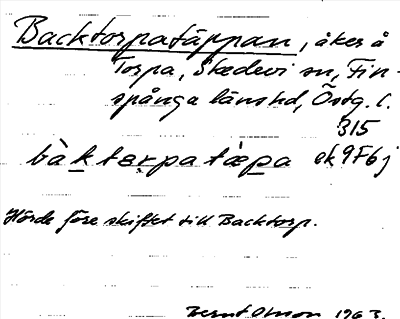 Backtorpatäppan, åker å
Torpa, Skedevi sn, Fin-
spånga länshd, Östg. l.
315
bàkterpatæpa ek 9F6j
Hörde före skiftet till Backtorp.
Bernt Olsson 1963.